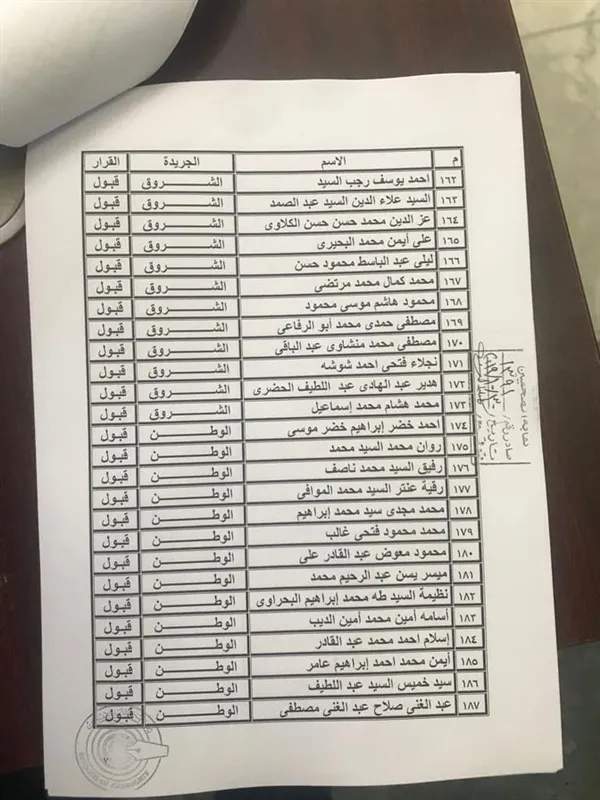 م الاسم الجريدة القرار
١٦٢ احمد يوسف رجب السيد الشروق قبول
١٦٣ السيد علاء الدين السيد عبد الصمد الشروق قبول
١٦٤ عز الدين محمد حسن حسن الكلاوى الشروق قبول
١٦٥ على أيمن محمد البحيرى الشروق قبول
١٦٦ ليلى عبد الباسط محمود حسن الشروق قبول
١٦٧ محمد كمال محمد مرتضى الشروق قبول
١٦٨ محمود هاشم موسى محمود الشروق قبول
١٦٩ مصطفى حمدى محمد أبو الرفاعى الشروق قبول
١٧٠ مصطفى محمد منشاوى عبد الباقى الشروق قبول
١٧١ نجلاء فتحى احمد شوشه الشروق قبول
١٧٢ هدير عبد الهادى عبد اللطيف الحضرى الشروق قبول
١٧٣ محمد هشام محمد إسماعيل الشروق قبول
١٧٤ احمد خضر إبراهيم خضر موسى الوطن قبول
١٧٥ روان محمد السيد محمد الوطن قبول
١٧٦ رفيق السيد محمد ناصف الوطن قبول
١٧٧ رقية عنتر السيد محمد الموافى الوطن قبول
١٧٨ محمد مجدى سيد محمد إبراهيم الوطن قبول
١٧٩ محمد محمود فتحى غالب الوطن قبول
١٨٠ محمود معوض عبد القادر على الوطن قبول
١٨١ ميسر يسن عبد الرحيم محمد الوطن قبول
١٨٢ نظيمة السيد طه محمد إبراهيم البحراوى الوطن قبول
١٨٣ أسامه أمين محمد أمين الديب الوطن قبول
١٨٤ إسلام احمد محمد عبد القادر الوطن قبول
١٨٥ أيمن محمد احمد إبراهيم عامر الوطن قبول
١٨٦ سيد خميس السيد عبد اللطيف الوطن قبول
١٨٧ عبد الغنى صلاح عبد الغنى مصطفى الوطن قبول
نقابة الصحفيين
صادر رقم /
بتاريخ /
٧